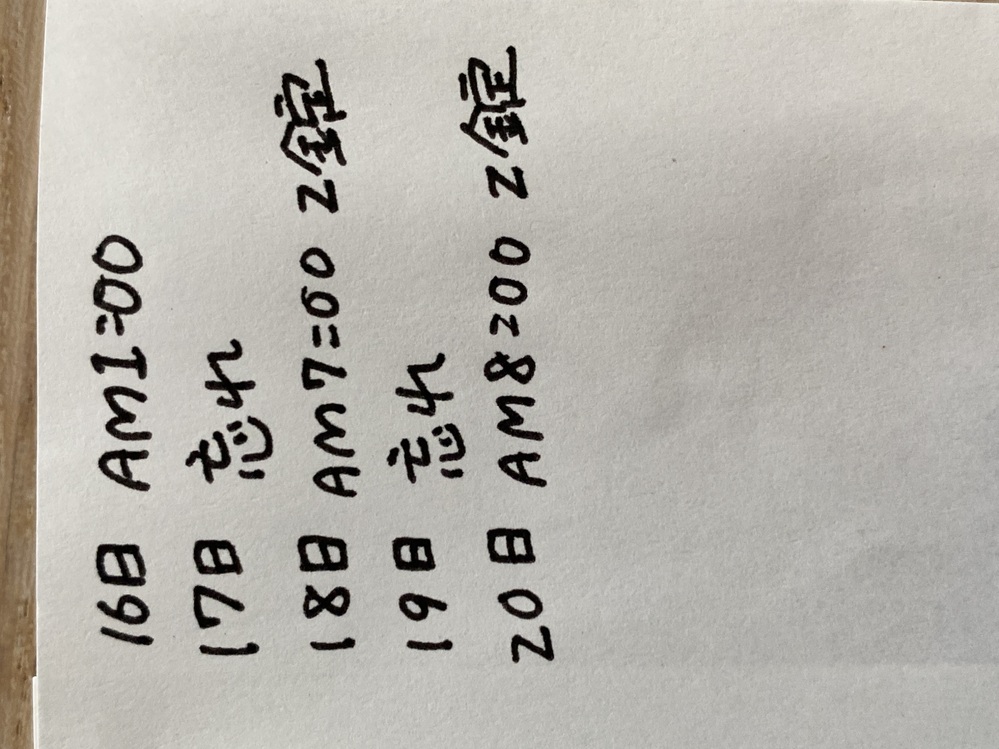 16日 AM1:00
17日 忘れ
18日 AM7:00 2錠
19日 忘れ
20日 AM8:00 2錠